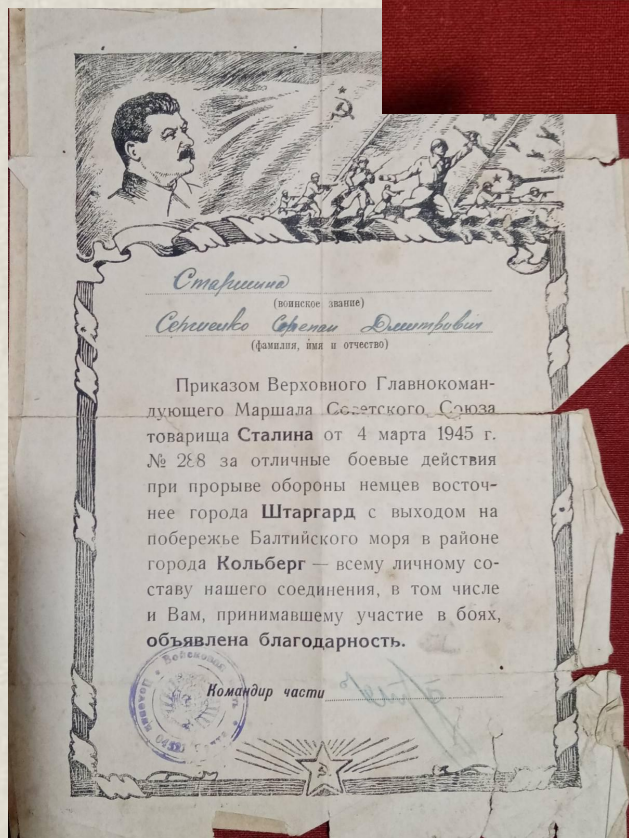 Старшина
(воинское звание)
Сергиенко Степан Дмитрович
(фамилия, имя и отчество)
Приказом Верховного Главнокоман-
дующего Маршала Советского Союза
товарища Сталина от 4 марта 1945 г.
№ 288 за отличные боевые действия
при прорыве обороны немцев восточ-
нее города Штаргард с выходом на
побережье Балтийского моря в районе
города Кольберг — всему личному со-
ставу нашего соединения, в том числе
и Вам, принимавшему участие в боях,
объявлена благодарность.
Командир части